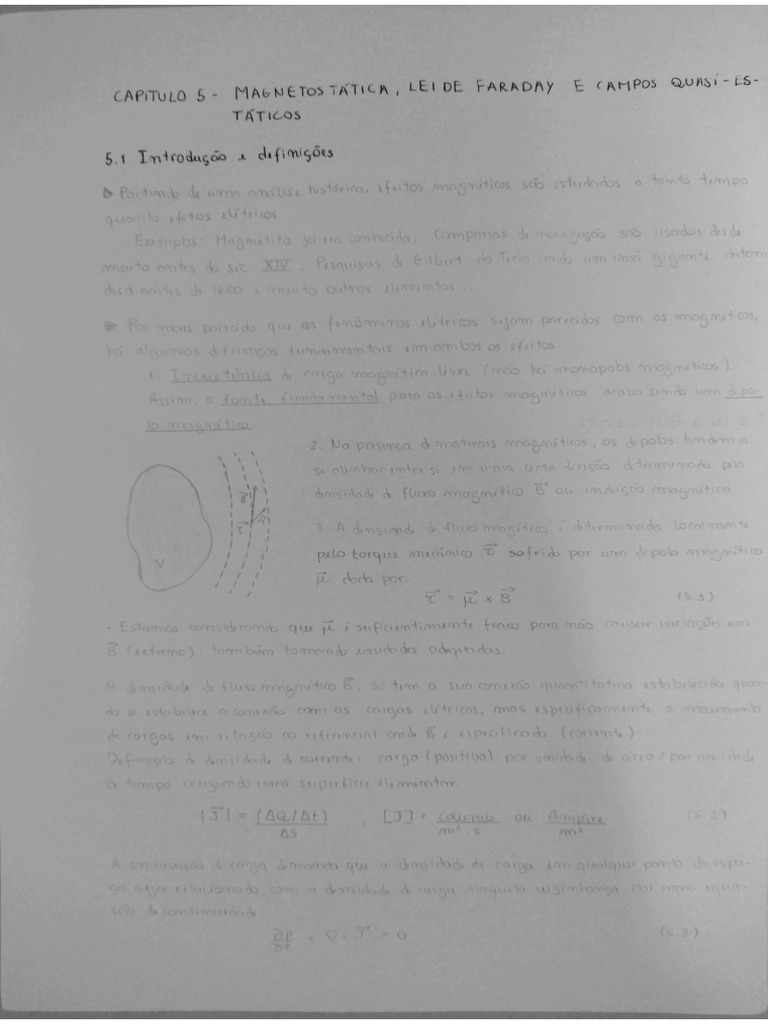 CAPITULO 5 - MAGNETOSTÁTICA, LEI DE FARADAY E CAMPOS QUASI-ES-
TÁTICOS
5.1 Introdução e definições
Partindo de uma análise histórica, efeitos magnéticos são estudados a tanto tempo
quanto efeitos elétricos.
Exemplos: Magnetita já era conhecida; Compassos de navegação são usados desde
muito antes do séc XIV; Pesquisas de Gilbert da Terra sendo um imã gigante datam
desd antes de 1600 e muito outros elementos...
Por mais parecido que os fenômenos elétricos sejam parecidos com os magnéticos,
há algumas diferenças fundamentais em ambos os efeitos.
1. Inexistência de carga magnética livre (não há monopolos magnéticos)
Assim, a fonte fundamental para os efeitos magnéticos, acaba sendo um dipo-
lo magnético.
2. Na presença de materais magnéticos, os dipolos tendem a
se alinhar entre si em uma certa direção determinada pela
densidade de fluxo magnético B⃗ ou indução magnética.
3. A densidade de fluxo magético é determinada localmente
pelo torque mecânico τ⃗ sofrido por um dipolo magnético
μ⃗ dado por:
V
τ⃗ = μ⃗ × B⃗ (5.1)
- Estamos considerando que μ⃗ é suficientemente fraco para não causar variações em
B⃗ (externo), também, tomando unidades adequadas.
A densidade de fluxo magnético B⃗, só tem a sua conexão quantitativa estabelecida quan-
do se estabelece a conexão com as cargas elétricas, mas especificamente o movimento
de cargas em relação ao referencial onde B⃗ é especificado (corrente).
Definição de densidade de corrente: carga (positiva) por unidade de área / por unidade
de tempo cruzando uma superfície elementar.
|J⃗| = (ΔQ/Δt)/ΔS , [J] = Columb/m²·s ou Ampère/m² (5.2)
A conservação de carga demanda que a densidade de carga em qualquer ponto do espa-
ço seja relacionado com a densidade de carga naquela vizinhança por uma equa-
ção de continuidade
∂ρ/∂t + ∇·J⃗ = 0 (5.3)